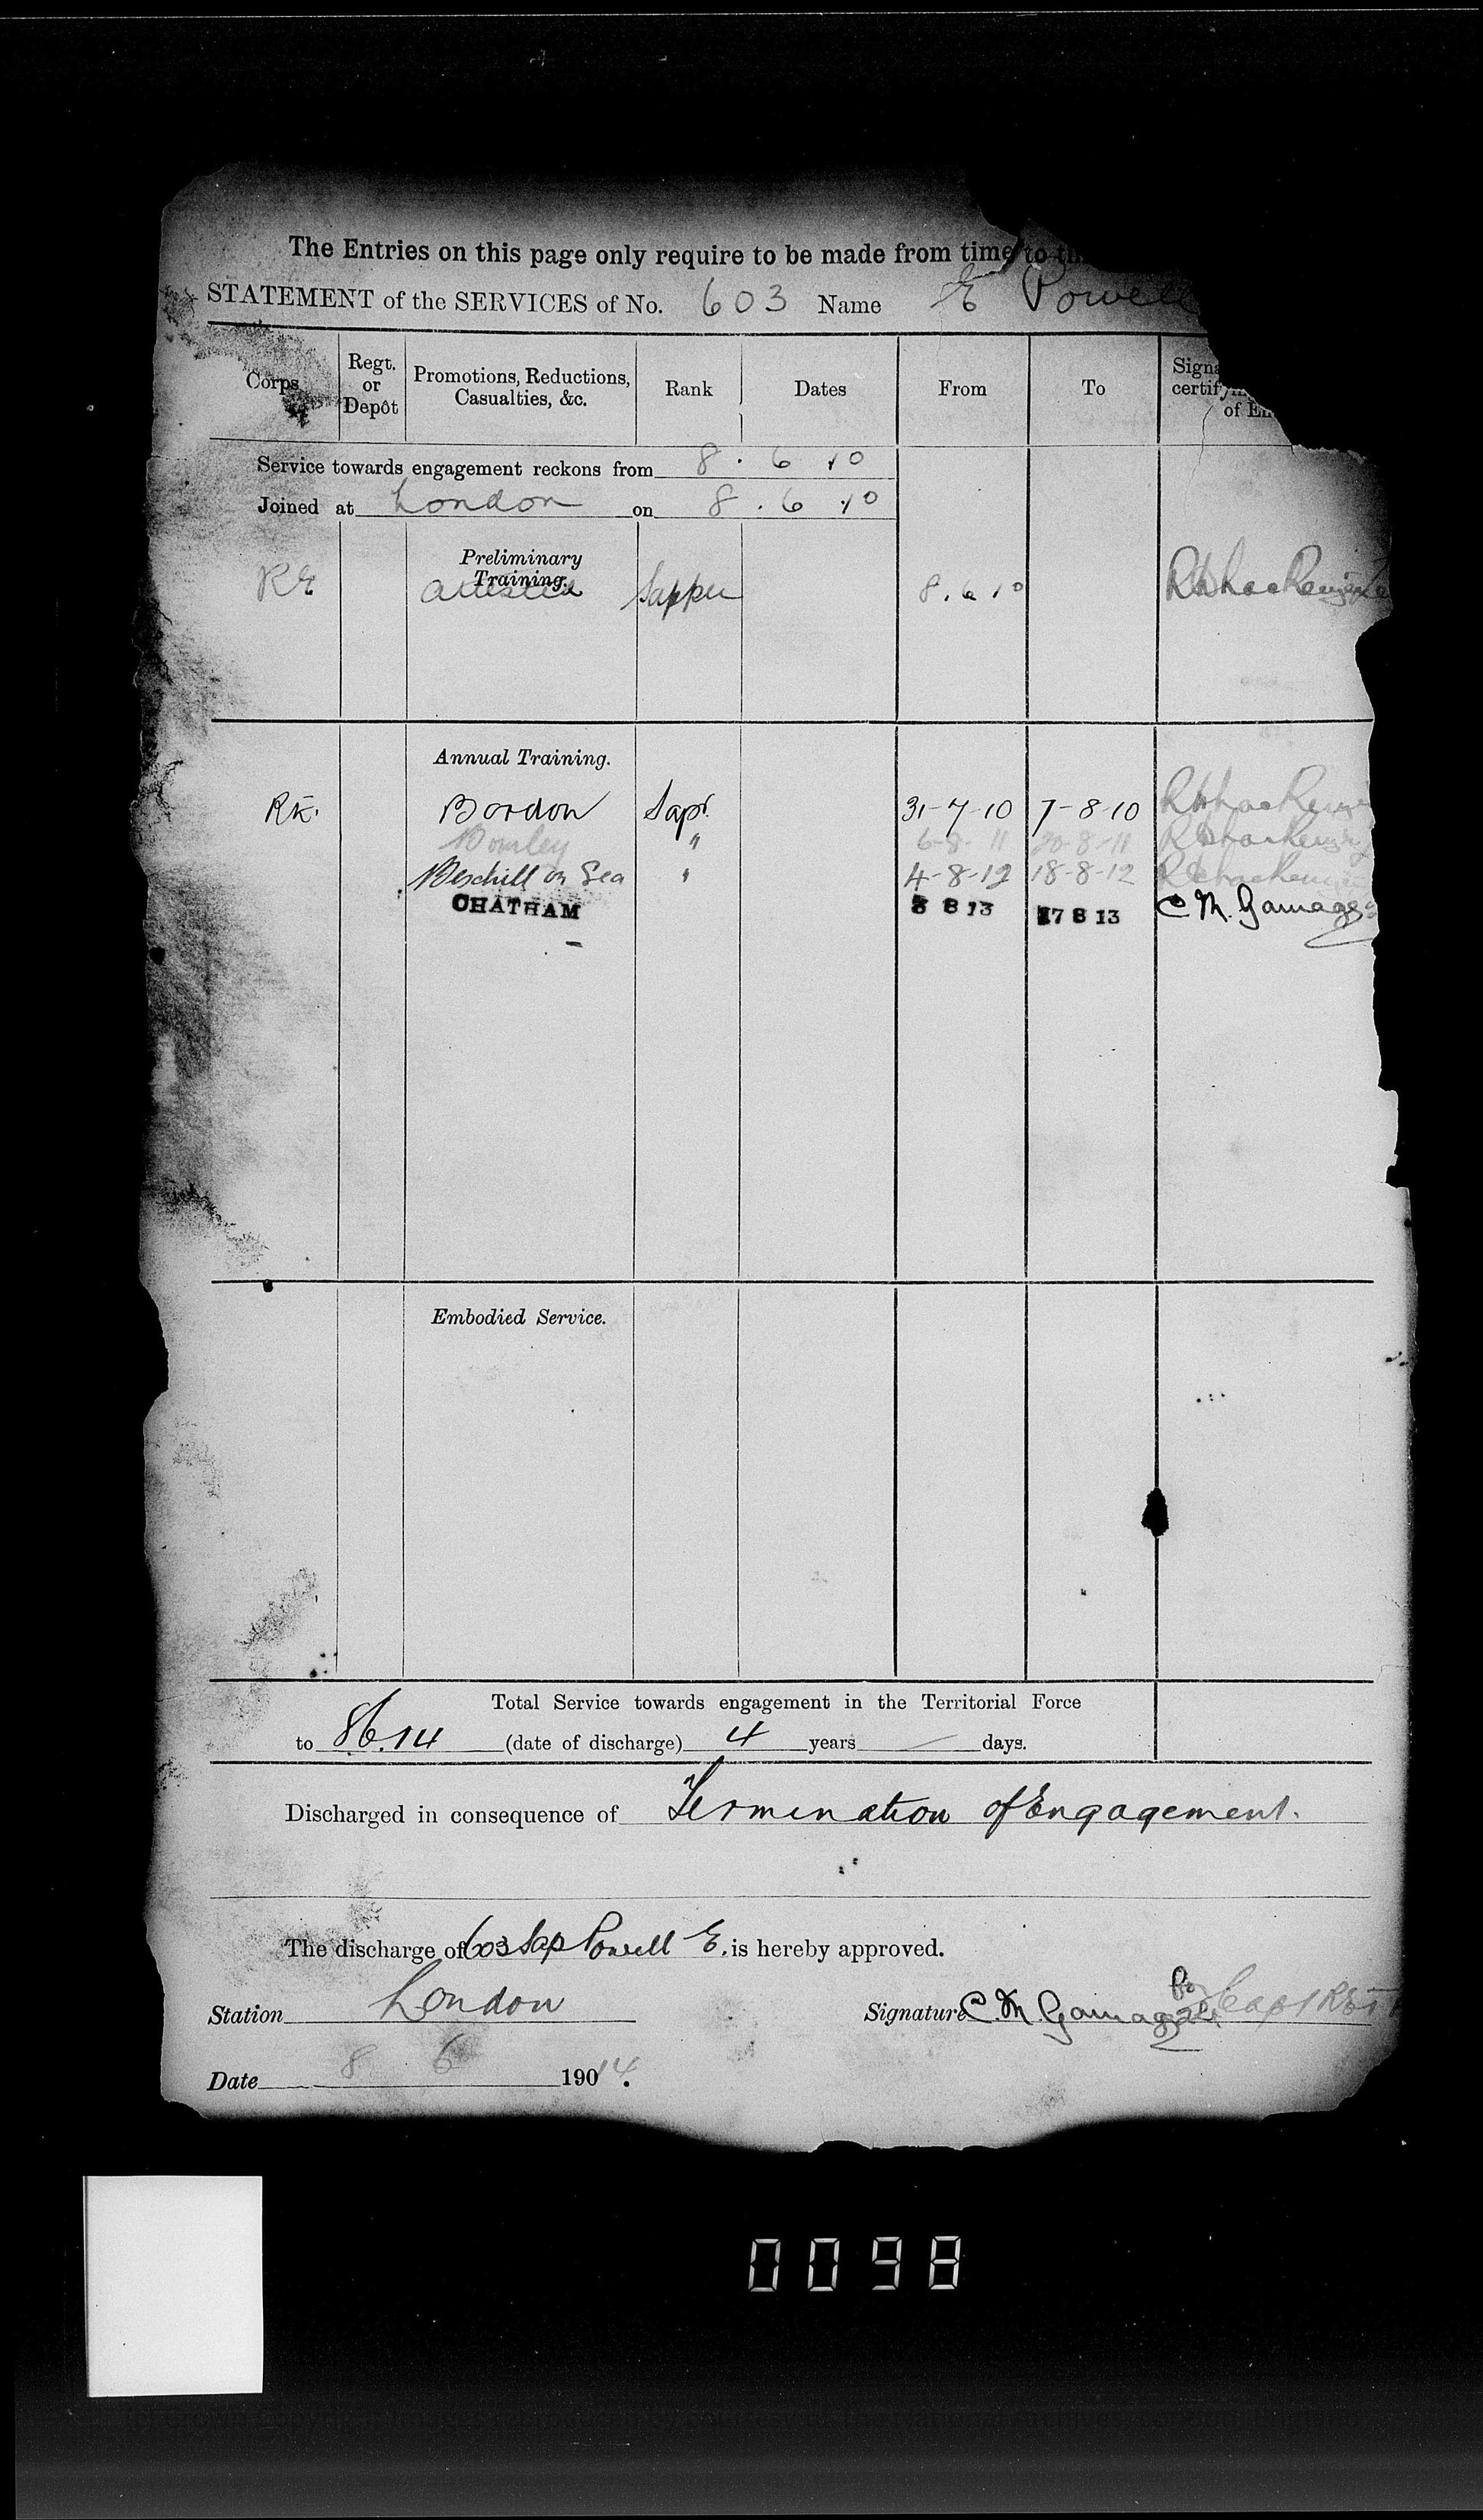 The Entries on this page only require to be made from time to
STATEMENT of the SERVICES of No. 603 Name E Powell
Corps
Regt. or Depôt
Promotions, Reductions, Casualties, &c.
Rank
Dates
From
To
of
Service towards engagement reckons from 8 . 6 10
Joined at London on 8 . 6 10
Preliminary
Training.
RE attested Sapper 8.6 10
Annual Training.
RE. Bordon Sapr. 31-7-10 7-8-10
" 6-8-11 20-8-11
Bexhill on Sea " 4-8-12 18-8-12
CHATHAM 3 8 13 17 8 13 C M. Gamage
Embodied Service.
Total Service towards engagement in the Territorial Force
to 8.6.14 (date of discharge) 4 years — days.
Discharged in consequence of Termination of Engagement.
The discharge of 603 Sap Powell E. is hereby approved.
Station London Signature C. M. Gamage Capt RE
Date 8 6 190 14.
0098